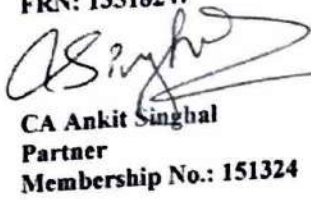 FRN:
ASinghal
CA Ankit Singhal
Partner
Membership No.: 151324